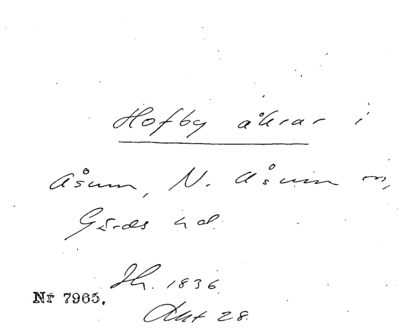 Hofby åkrar i
Åsum, N. Åsum sn,
Gärds hd.
Jh. 1836.
Nr 7965.
Akt 28.